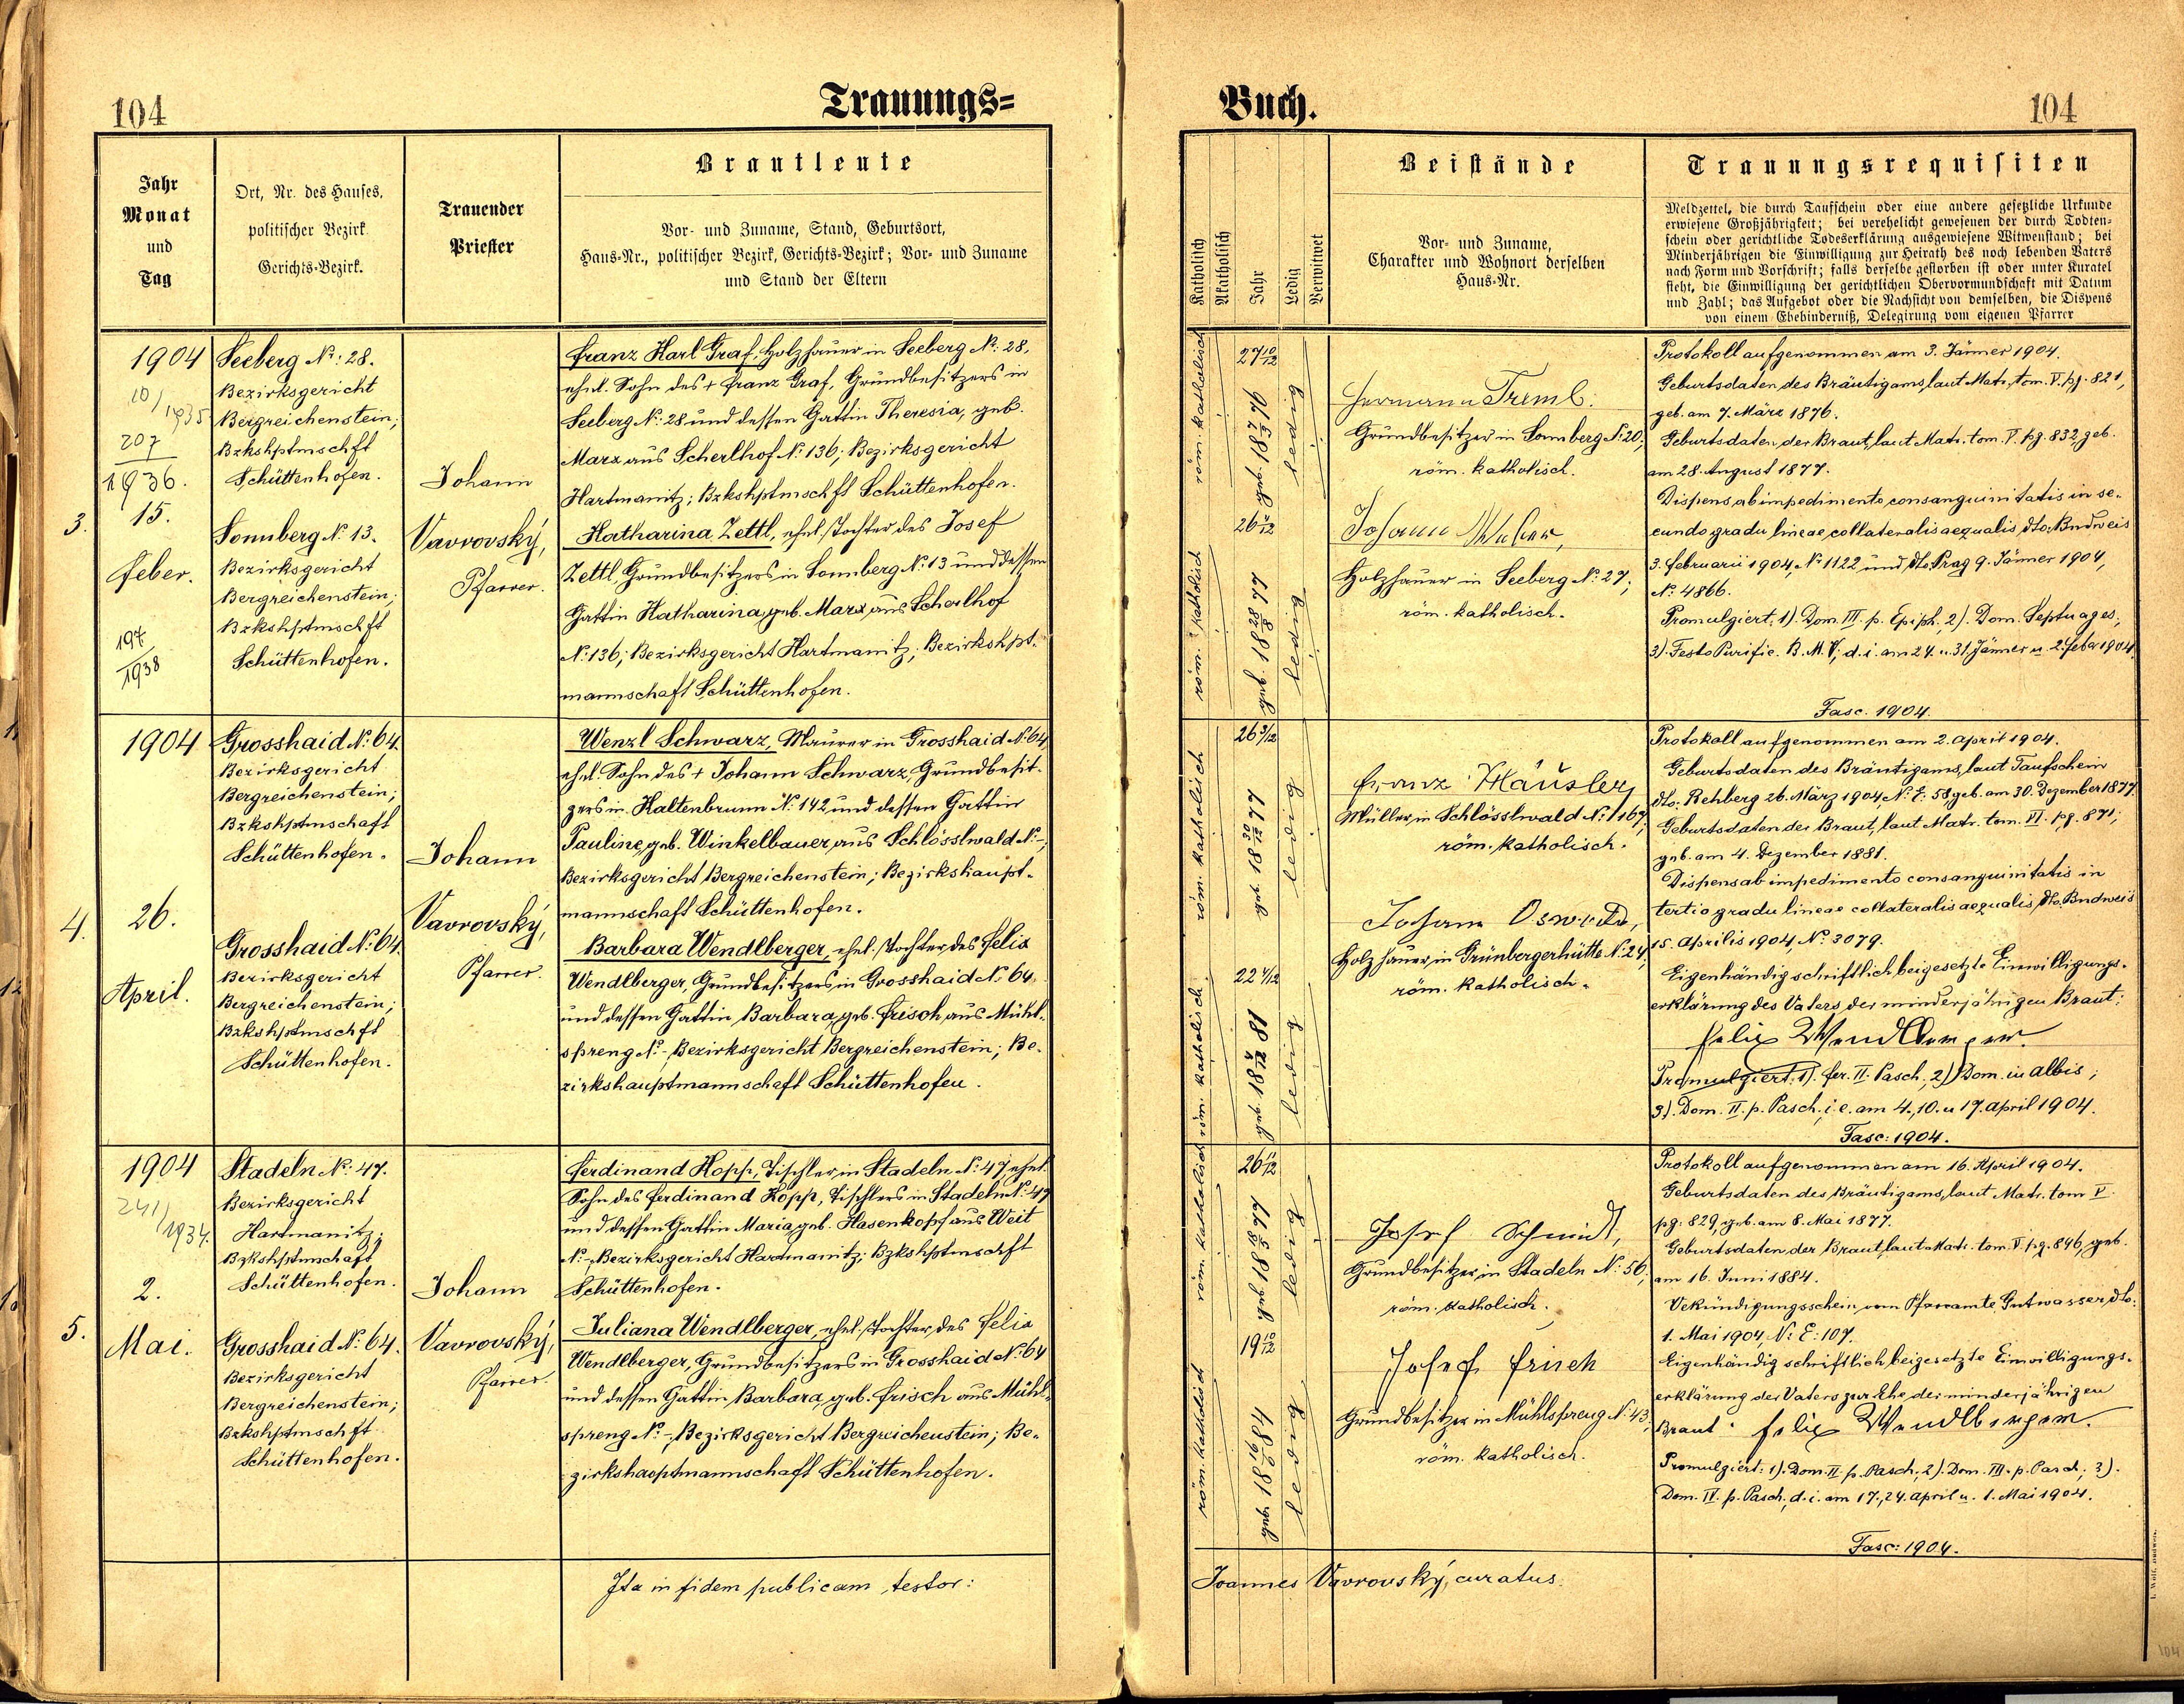 104
Trauungs=
Jahr
Monat
und
Tag
Ort, Nr. des Hauses,
politischer Bezirk
Gerichts-Bezirk.
Trauender
Priester
Brautleute
Vor- und Zuname, Stand, Geburtsort,
Haus-Nr., politischer Bezirk, Gerichts-Bezirk; Vor- und Zuname
und Stand der Eltern
3.
1904
10/1935
207
1936.
15.
Feber.
197
1938
Seeberg No: 28.
Bezirksgericht
Bergreichenstein;
Bzkshptmschft
Schüttenhofen.
Sonnberg No 13.
Bezirksgericht
Bergreichenstein;
Bzkshptmschft
Schüttenhofen.
Johann
Vavrovský,
Pfarrer.
Franz Karl Graf, Holzhauer in Seeberg No: 28,
ehel. Sohn des + Franz Graf, Grundbesitzers in
Seeberg No: 28 und dessen Gattin Theresia, geb.
Marx aus Scherlhof No: 136; Bezirksgericht
Hartmanitz; Bzkshptmschft Schüttenhofen.
Katharina Zettl, ehel. Tochter des Josef
Zettl, Grundbesitzers in Sonnberg No: 13 und dessen
Gattin Katharina, geb. Marx aus Scherlhof
No: 136; Bezirksgericht Hartmanitz; Bezirkshpt-
mannschaft Schüttenhofen.
4.
1904
26.
April.
Grosshaid No: 64.
Bezirksgericht
Bergreichenstein;
Bzkshptmschaft
Schüttenhofen.
Grosshaid No: 64.
Bezirksgericht
Bergreichenstein;
Bzkshptmschft
Schüttenhofen.
Johann
Vavrovský,
Pfarrer.
Wenzl Schwarz, Maurer in Grosshaid No 64
ehel. Sohn des + Johann Schwarz, Grundbesit-
zers in Kaltenbrunn No: 142 und dessen Gattin
Pauline, geb. Winkelbauer, aus Schlösslwald No -;
Bezirksgericht Bergreichenstein; Bezirkshaupt-
mannschaft Schüttenhofen.
Barbara Wendlberger, ehel. Tochter des Felix
Wendlberger, Grundbesitzers in Grosshaid No: 64
und dessen Gattin Barbara, geb. Frisch aus Mühl-
spreng No -, Bezirksgericht Bergreichenstein; Be-
zirkshauptmannschaft Schüttenhofen.
5.
1904
241/1934.
2.
Mai.
Stadeln No: 47.
Bezirksgericht
Hartmanitz;
Bzkshptmschaft
Schüttenhofen.
Grosshaid No: 64.
Bezirksgericht
Bergreichenstein;
Bzkshptmschft
Schüttenhofen.
Johann
Vavrovský,
Pfarrer.
Ferdinand Kopp, Tischler in Stadeln No: 47, ehel.
Sohn des Ferdinand Kopp, Tischlers in Stadeln No: 47
und dessen Gattin Maria, geb. Hasenkopf aus Weit
No -, Bezirksgericht Hartmanitz; Bzkshptmschft
Schüttenhofen.
Juliana Wendlberger, ehel. Tochter des Felix
Wendlberger, Grundbesitzers in Grosshaid No: 64
und dessen Gattin Barbara, geb. Frisch aus Mühl-
spreng No -, Bezirksgericht Bergreichenstein; Be-
zirkshauptmannschaft Schüttenhofen.
Ita in fidem publicam testor:
Buch.
104
Katholisch
Akatholisch
Jahr
Ledig
Verwitwet
Beistände
Vor- und Zuname,
Charakter und Wohnort derselben
Haus-Nr.
Trauungsrequisiten
Meldzettel, die durch Taufschein oder eine andere gesetzliche Urkunde
erwiesene Großjährigkeit; bei verehelicht gewesenen der durch Todten-
schein oder gerichtliche Todeserklärung ausgewiesene Witwenstand; bei
Minderjährigen die Einwilligung zur Heirath des noch lebenden Vaters
nach Form und Vorschrift; falls derselbe gestorben ist oder unter Kuratel
steht, die Einwilligung der gerichtlichen Obervormundschaft mit Datum
und Zahl; das Aufgebot oder die Nachsicht von demselben, die Dispens
von einem Ehebinderniß, Delegirung vom eigenen Pfarrer
röm. katholisch
27 10/12
geb. 18 7/3 76
ledig
röm. katholisch
26 5/12
geb. 18 28/8 77
ledig
Hermann Treml.
Grundbesitzer in Sonnberg No: 20;
röm. katholisch.
Johann
Holzhauer in Seeberg No: 27;
röm. katholisch.
Protokoll aufgenommen am 3. Jänner 1904.
Geburtsdaten des Bräutigams, laut Matr. tom. V. pg. 821,
geb. am 7. März 1876.
Geburtsdaten der Braut, laut Matr. tom. V. pg. 832, geb.
am 28. August 1877.
Dispens ab impedimento consanguinitatis in se-
cundo gradu lineae collateralis aequalis dto. Budweis
3. Februarii 1904, No 1122 und dto Prag 9. Jänner 1904,
No: 4866.
Promulgiert: 1). Dom. III. p. Epiph., 2). Dom. Septuages;
3). Festo Purific. B. M. V; d. i. am 24. u. 31. Jänner u. 2. Feber 1904.
Fasc. 1904.
röm. katholisch
26 3/12
geb. 18 30/12 77
ledig
röm. katholisch
22 4/12
geb. 18 4/12 81
ledig
Franz Häusler,
Müller, in Schlösslwald No: 167;
röm. katholisch.
Johann Oswald,
Holzhauer, in Grünbergerhütte No: 24,
röm. katholisch.
Protokoll aufgenommen am 2. April 1904.
Geburtsdaten des Bräutigams, laut Taufschein
dto. Rehberg 26. März 1904, No: E: 58 geb. am 30. Dezember 1877.
Geburtsdaten der Braut, laut Matr. tom. VI. pg. 871;
geb. am 4. Dezember 1881.
Dispens ab impedimento consanguinitatis in
tertio gradu lineae collateralis aequalis, dto. Budweis
15. Aprilis 1904, No: 3079.
Eigenhändig schriftlich beigesetzte Einwilligungs-
erklärung des Vaters der minderjährigen Braut:
Felix Wendlberger.
Promulgiert: 1). fer. II. Pasch., 2). Dom. in albis;
3). Dom. II. p. Pasch. i. e. am 4., 10. u 17. April 1904.
Fasc: 1904.
röm. katholisch
26 11/12
geb. 18 8/5 77
ledig
röm. katholisch
19 10/12
geb. 18 16/6 84
ledig
Josef Schmidt,
Grundbesitzer, in Stadeln No: 56,
röm. katholisch.
Josef Frisch
Grundbesitzer in Mühlspreng No: 43,
röm. katholisch.
Protokoll aufgenommen am 16. April 1904.
Geburtsdaten des Bräutigams, laut Matr. tom V.
pg: 829, geb. am 8. Mai 1877.
Geburtsdaten der Braut, laut Matr. tom. V. pg. 846, geb.
am 16. Juni 1884.
Vekündigungsschein, vom Pfarramte Gutwasser, dto:
1. Mai 1904, No: E: 107.
Eigenhändig schriftlich beigesetzte Einwilligungs-
erklärung des Vaters zur Ehe der minderjährigen
Braut: Felix Wendlberger.
Promulgiert: 1). Dom. II. p. Pasch., 2). Dom. III. p. Pasch.; 3).
Dom. IV. p. Pasch, d. i. am 17., 24. April u. 1. Mai 1904.
Fasc: 1904.
Joannes Vavrovský, curatus.
104